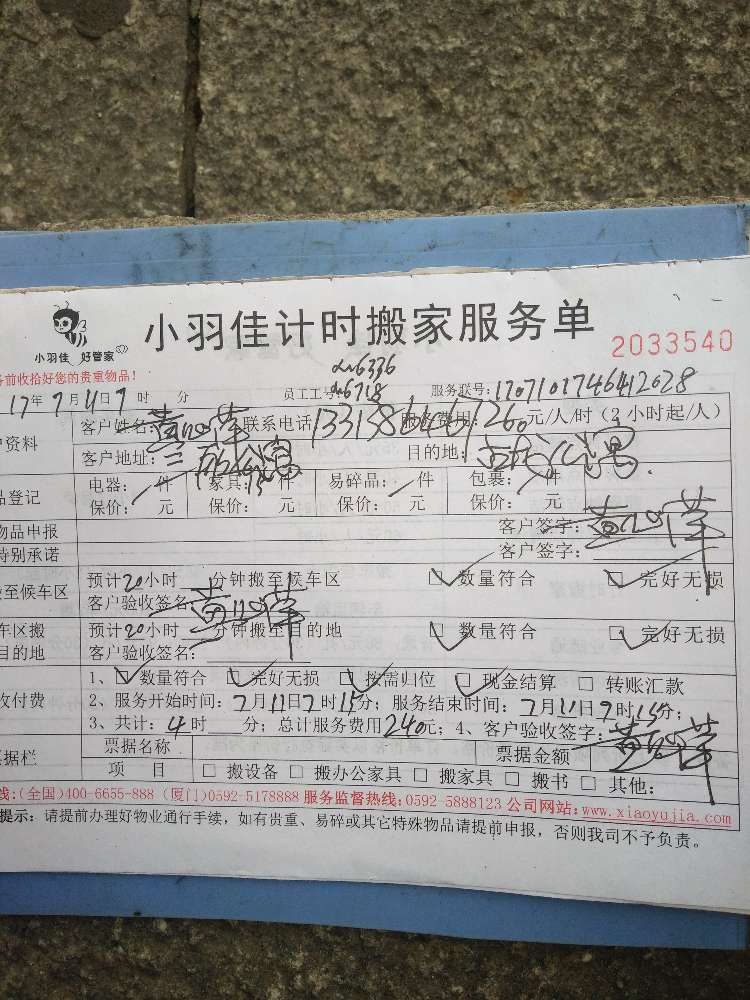 小羽佳 好管家
小羽佳计时搬家服务单
2033540
务前收拾好您的贵重物品！
员工工号 6336
6718
服务联号：
17年7月11日7时 分
资料 客户姓名： 联系电话 费用：60元/人/时（2小时起/人）
客户地址： 公寓 目的地： 公寓
品登记 电器： 件 家具： 件 易碎品： 件 包裹： 件
保价： 元 保价： 元 保价： 元 保价： 元
物品申报 客户签字：
特别承诺 客户签字：
至候车区 预计20小时 分钟搬至候车区 数量符合 完好无损
客户验收签名
车区搬 预计20小时 分钟搬至目的地 数量符合 完好无损
目的地 客户验收签名：
1、 数量符合 完好无损 按需归位 现金结算 转账汇款
收付费 2、服务开始时间：7月11日7时15分；服务结束时间：7月11日9时15分；
3、共计：4时 分；总计服务费用240元；4、客户验收签字：
票据栏 票据名称 票据金额
项 目 搬设备 搬办公家具 搬家具 搬书 其他：
线：(全国)400-6655-888 (厦门)0592-5178888 服务监督热线：0592-5888123 公司网站：www.xiaoyujia.com
提示：请提前办理好物业通行手续，如有贵重、易碎或其它特殊物品请提前申报，否则我司不予负责。